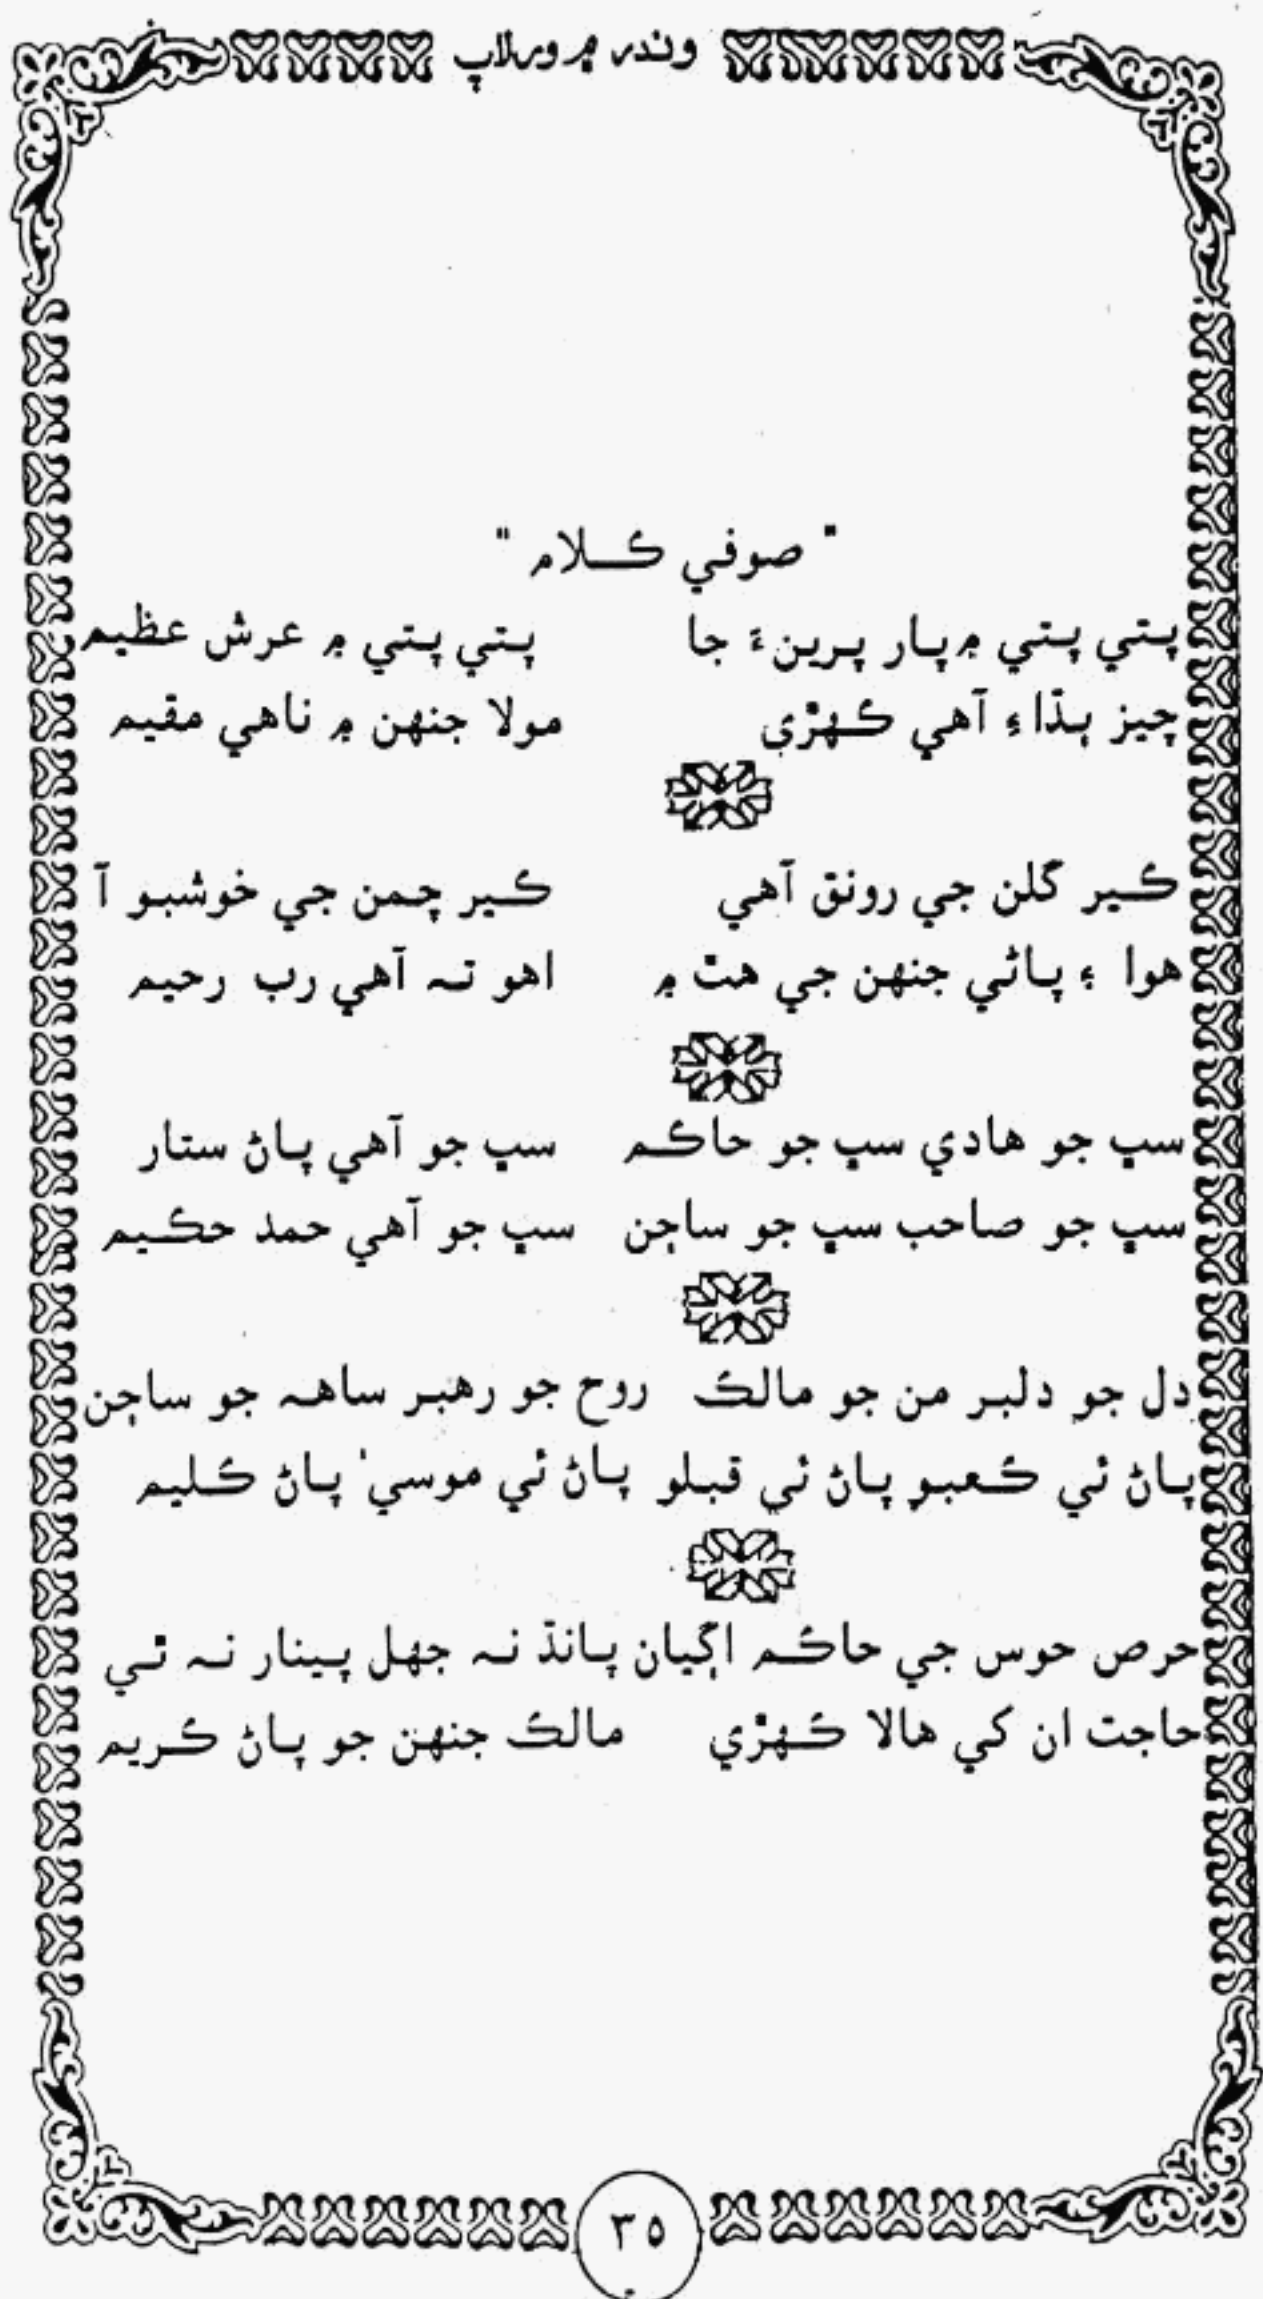 وندر ۾ ورلاپ
" صوفي ڪلام "
پتي پتي ۾ پار پرينءَ جا پتي پتي ۾ عرش عظيم
چيز ٻڌاءِ آهي ڪهڙي مولا جنهن ۾ ناهي مقيم
ڪير گلن جي رونق آهي ڪير چمن جي خوشبو آ
هوا ۽ پاڻي جنهن جي هٿ ۾ اهو ته آهي رب رحيم
سڀ جو هادي سڀ جو حاڪم سڀ جو آهي پاڻ ستار
سڀ جو صاحب سڀ جو ساڄن سڀ جو آهي حمد حڪيم
دل جو دلبر من جو مالڪ روح جو رهبر ساهه جو ساڄن
پاڻ ئي ڪعبو پاڻ ئي قبلو پاڻ ئي موسيٰ پاڻ ڪليم
حرص حوس جي حاڪم اڳيان پانڌ نه جهل پينار نه ٿي
حاجت ان کي هالا ڪهڙي مالڪ جنهن جو پاڻ ڪريم
٣٥